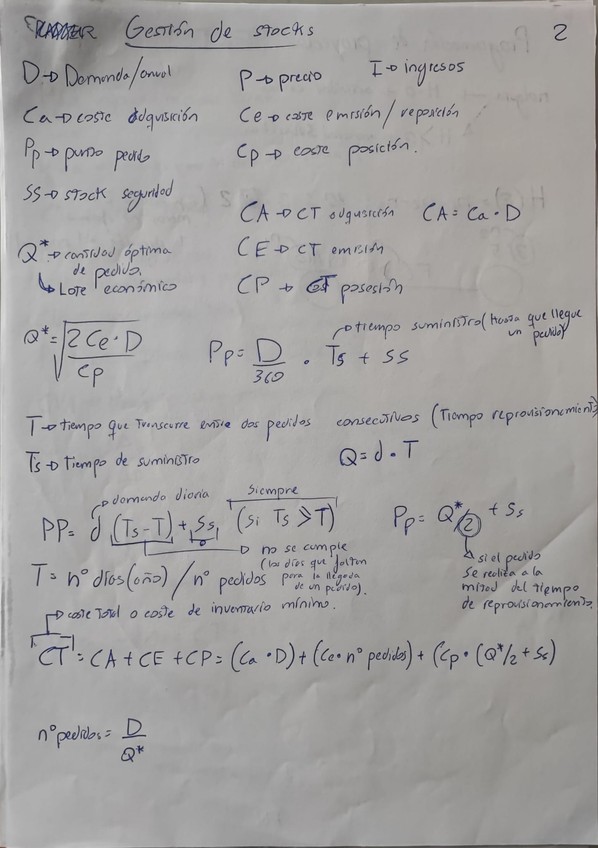 Gestión de stocks 2
D → Demanda/anual P → precio I → ingresos
Ca → coste adquisición Ce → coste emisión / reposición
Pp → punto pedido Cp → coste posición.
SS → stock seguridad
CA → CT adquisición CA = Ca · D
Q* → cantidad óptima de pedido. CE → CT emisión
↳ Lote económico CP → CT posesión
Q* = √(2 Ce · D / Cp) Pp = D/360 · Ts + SS
→ tiempo suministro (hasta que llegue un pedido)
T → tiempo que transcurre entre dos pedidos consecutivos (Tiempo reprovisionamiento)
Ts → Tiempo de suministro Q = d · T
→ demanda diaria siempre
PP = d (Ts - T) + Ss (si Ts ≥ T) Pp = Q*/2 + Ss
→ no se cumple
(los días que faltan para la llegada de un pedido).
si el pedido
se realiza a la
mitad del tiempo
de reprovisionamiento.
T = nº días (año) / nº pedidos
→ coste Total o coste de inventario mínimo.
CT = CA + CE + CP = (Ca · D) + (Ce · nº pedidos) + (Cp · (Q*/2 + Ss)
nº pedidos = D/Q*